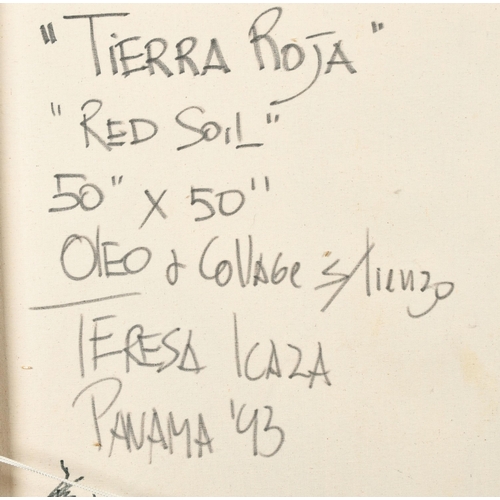 "TIERRA ROJA"
"RED SOIL"
50" X 50"
OLEO & COLLAGE s/lienzo
TERESA ICAZA
PANAMA '93